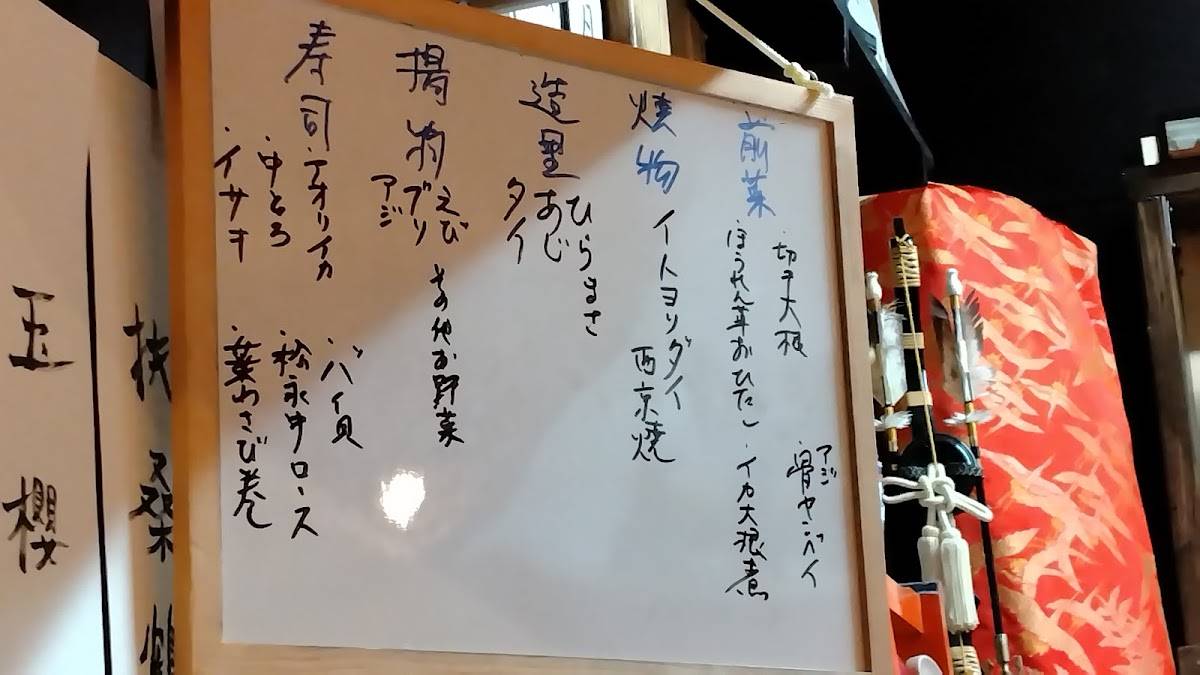 前菜
・切干大根
アジ
・骨センベイ
ほうれん草おひたし
・イカ大根煮
焼物
イトヨリダイ
西京焼
造里
ひらまさ
あじ
タイ
揚物
えび
ブリ
アジ
その他お野菜
寿司
・アオリイカ
・中とろ
・イサキ
・バイ貝
・松永牛ロース
・葉わさび巻
扶桑鶴
玉櫻